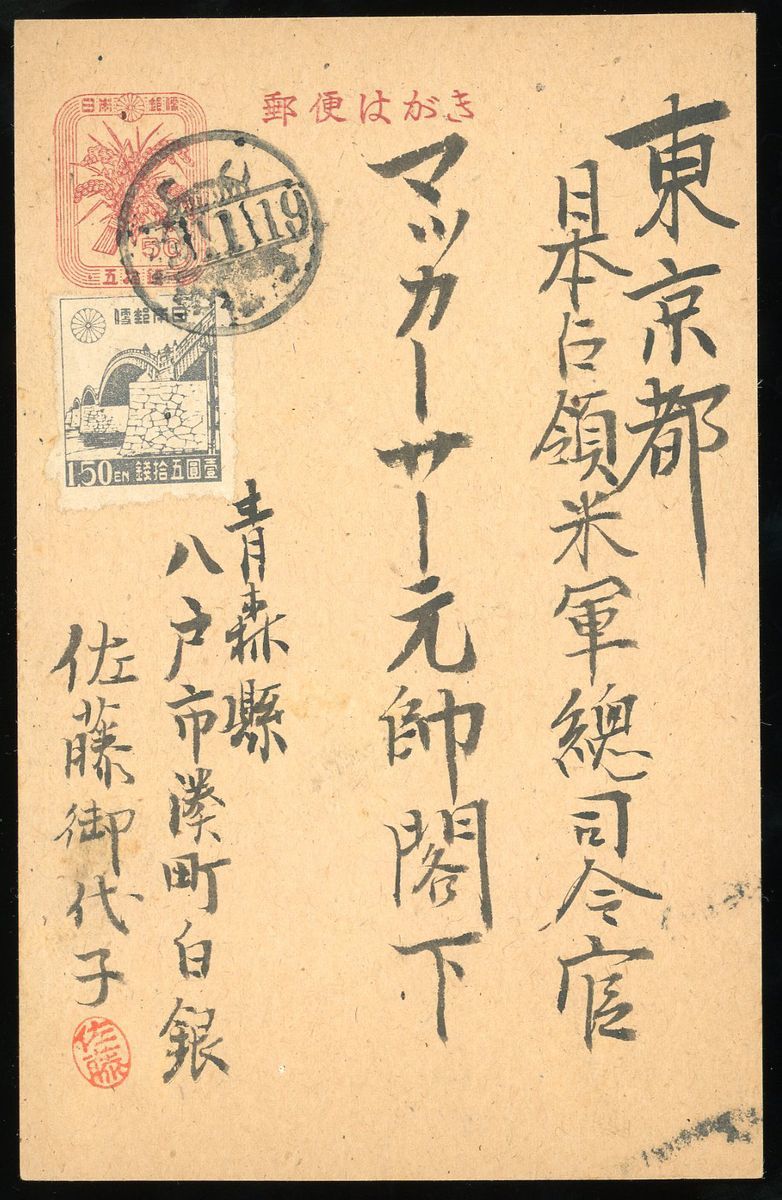 郵便はがき
日本郵便
50
五拾錢
日本郵便
1.50EN 壹圓五拾錢
東京都
日本占領米軍總司令官
マッカーサー元帥閣下
青森縣
八戸市湊町白銀
佐藤御代子
佐藤